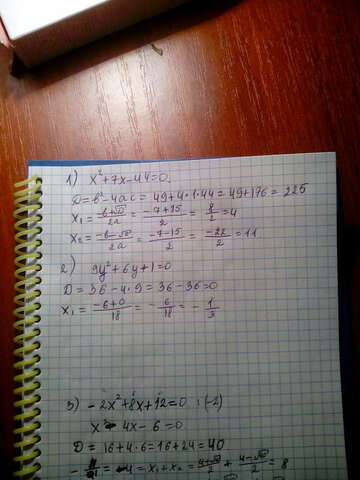 1) x²+7x-44=0.
D=b²-4ac=49+4·1·44=49+176=225
x₁=(-b+√D)/2a=(-7+15)/2=8/2=4
x₂=(-b-√D)/2a=(-7-15)/2=-22/2=11
2) 9y²+6y+1=0
D=36-4·9=36-36=0
x₁=(-6+0)/18=-6/18=-1/3
3) -2x²+8x+12=0 :(-2)
x²-4x-6=0
D=16+4·6=16+24=40
=-4=x₁+x₂=(4+√40)/2+(4-√40)/2=8